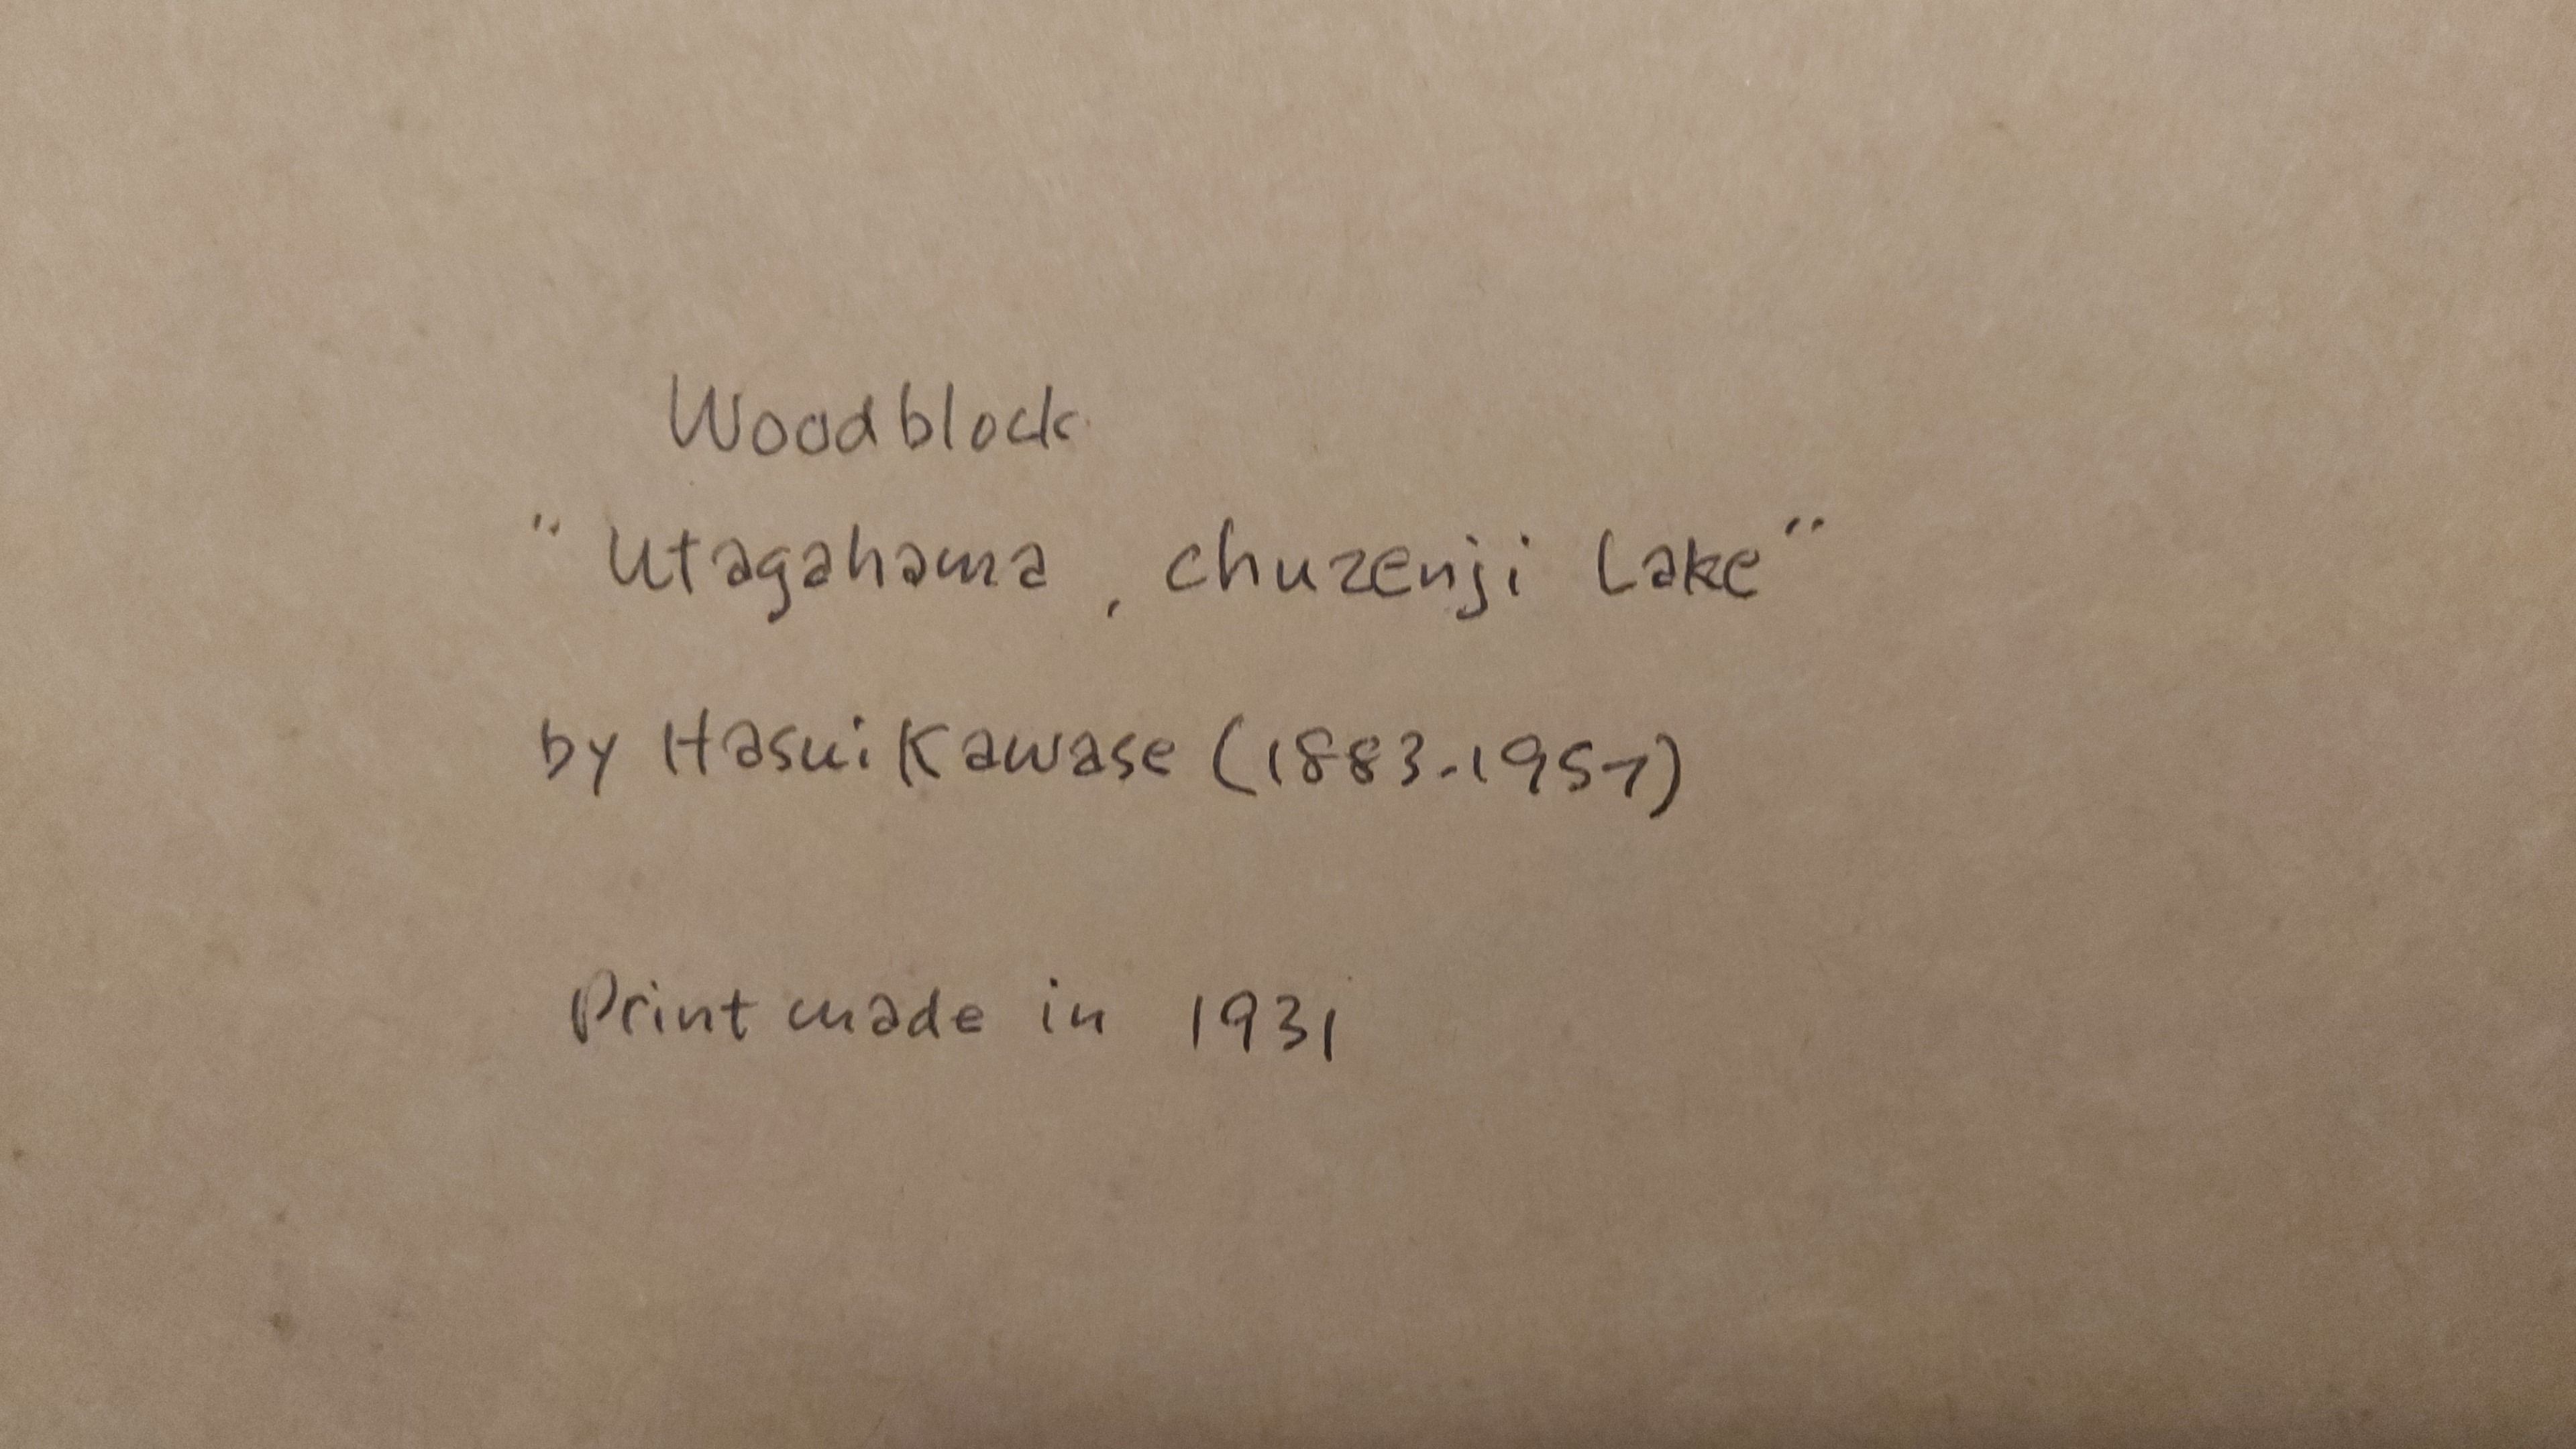 Woodblock
"Utagahama, chuzenji Lake"
by Hasui Kawase (1883-1957)
Print made in 1931